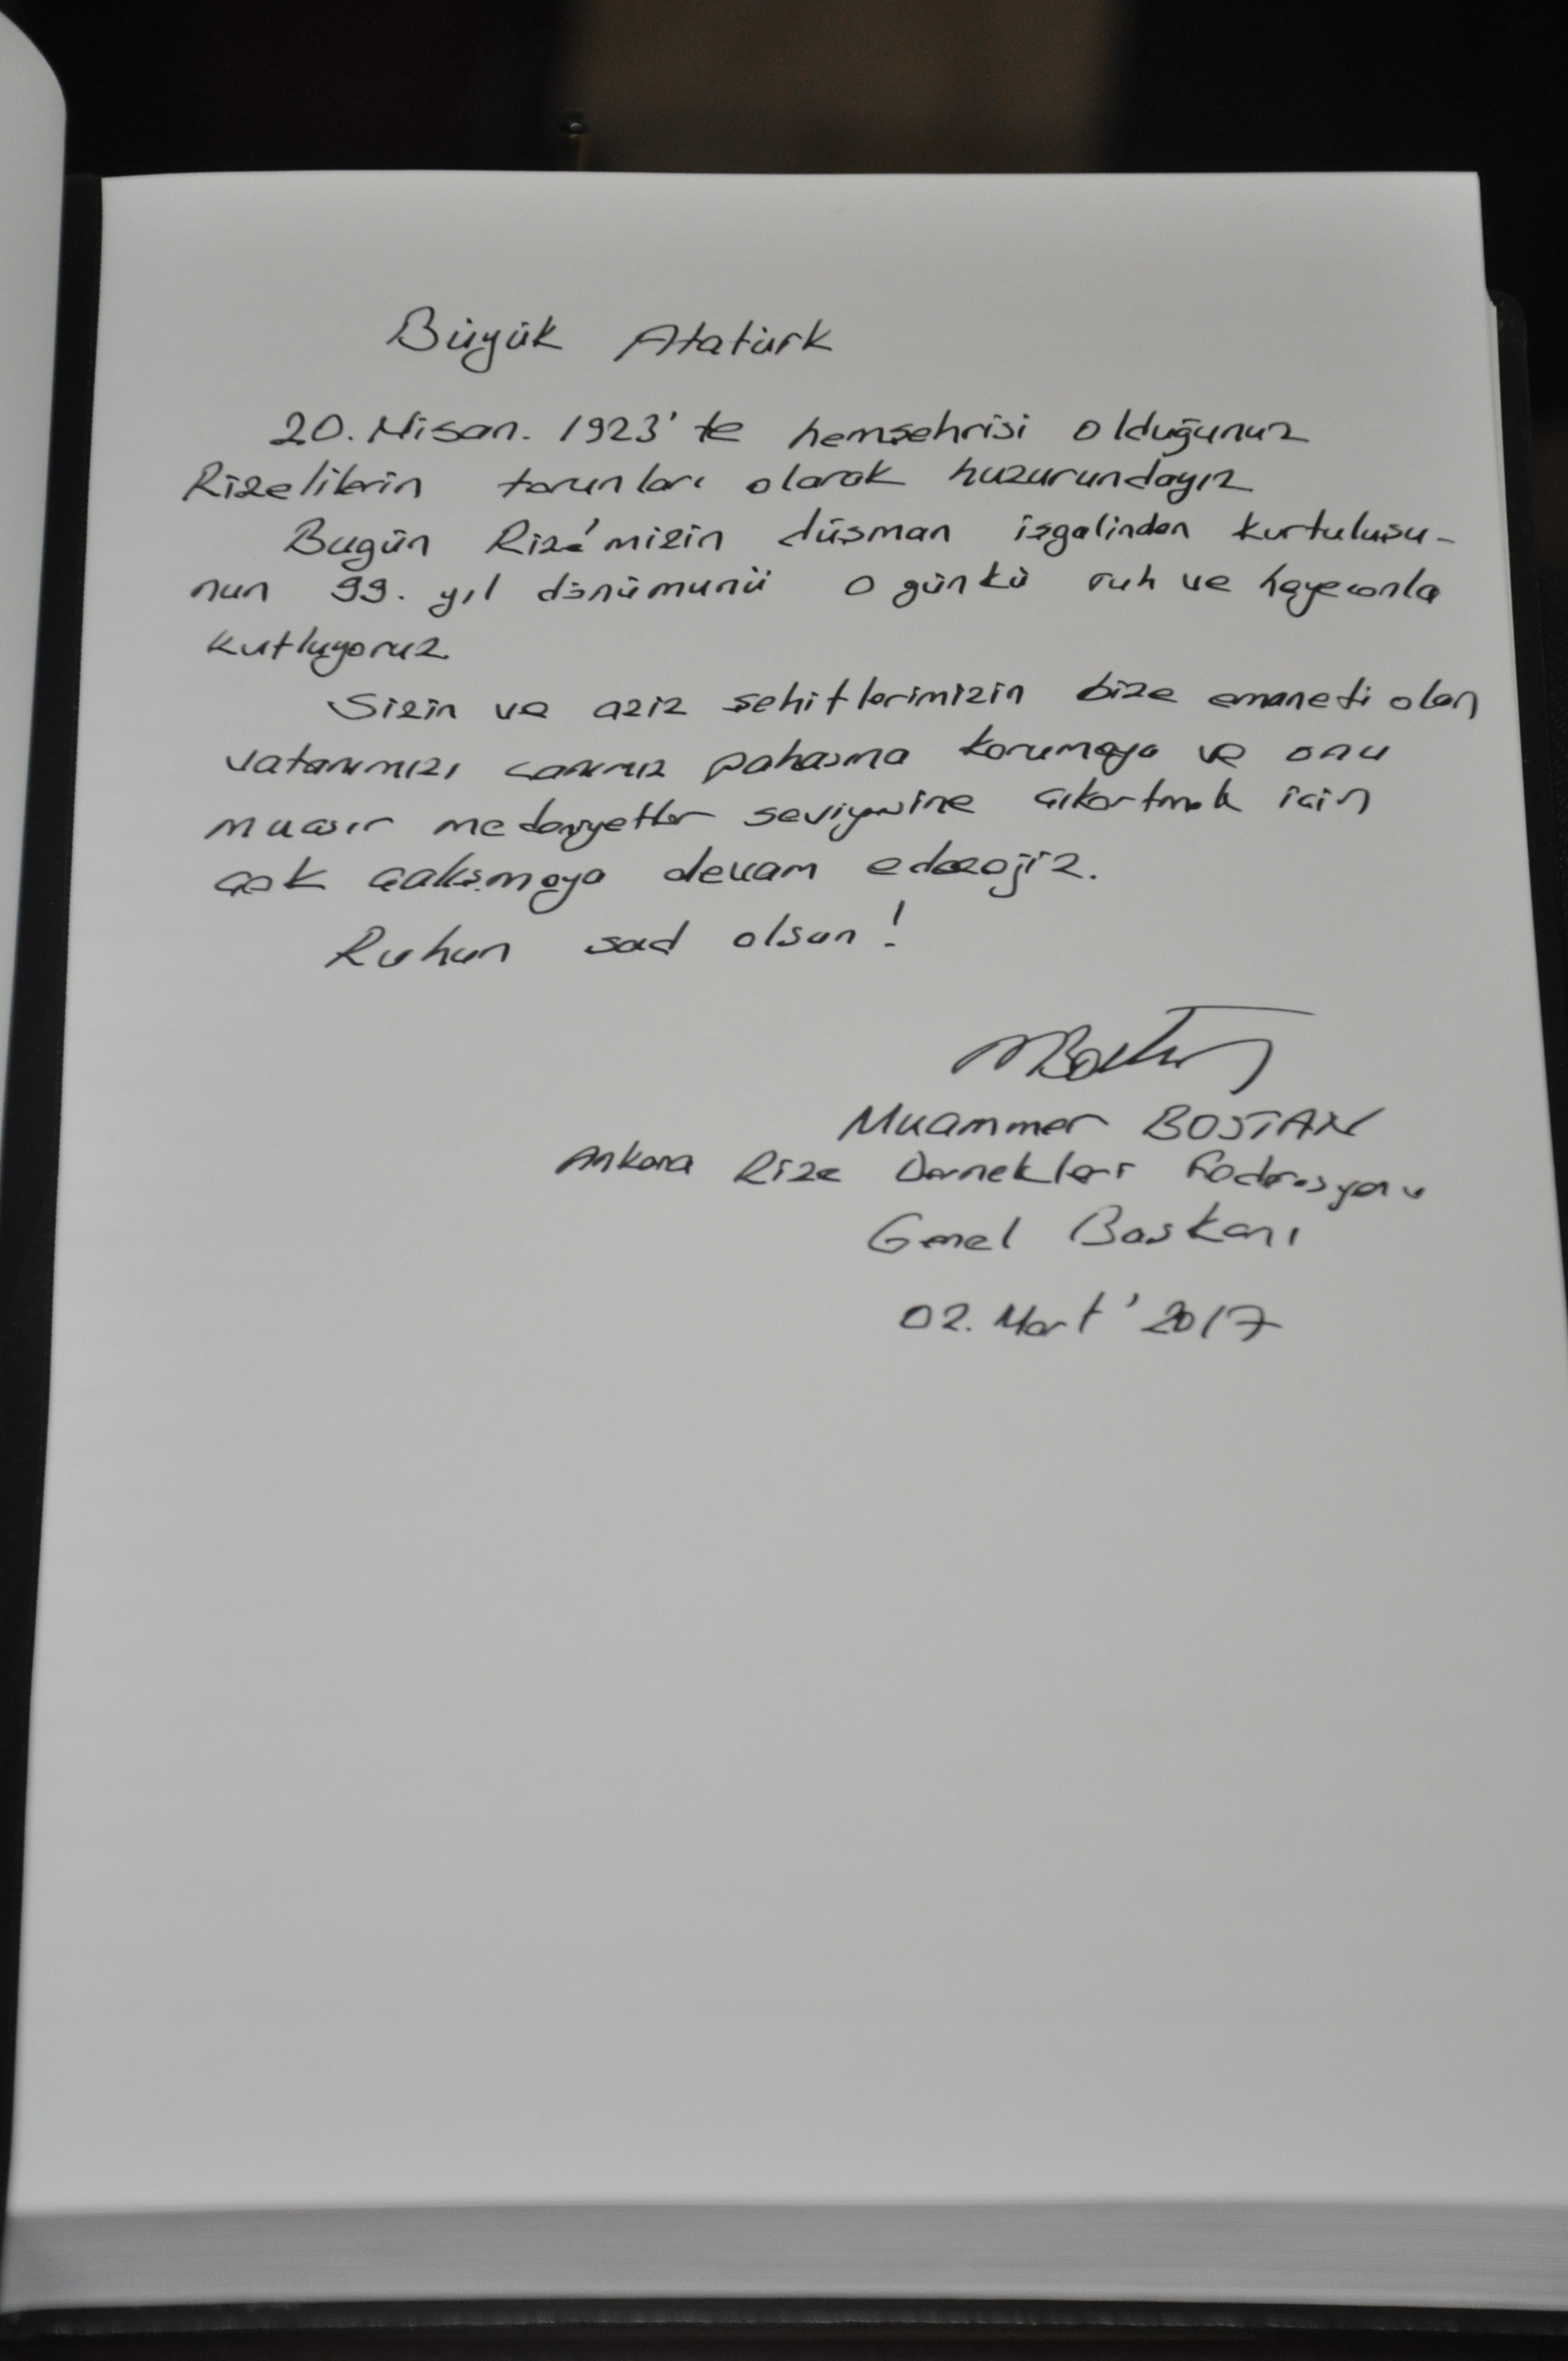 Büyük Atatürk
20. Nisan. 1923'te hemşehrisi olduğunuz
Rizelilerin torunları olarak huzurundayız
Bugün Rize'mizin düşman işgalinden kurtuluşu-
nun 99. yıl dönümünü o günkü ruh ve heyecanla
kutluyoruz.
Sizin ve aziz şehitlerimizin bize emaneti olan
vatanımızı canımız pahasına korumaya ve onu
muasır medeniyetler seviyesine çıkartmak için
çok çalışmaya devam edeceğiz.
Ruhun şad olsun!
Muammer BOSTAN
Ankara Rize Dernekleri Federasyonu
Genel Başkanı
02. Mart' 2017